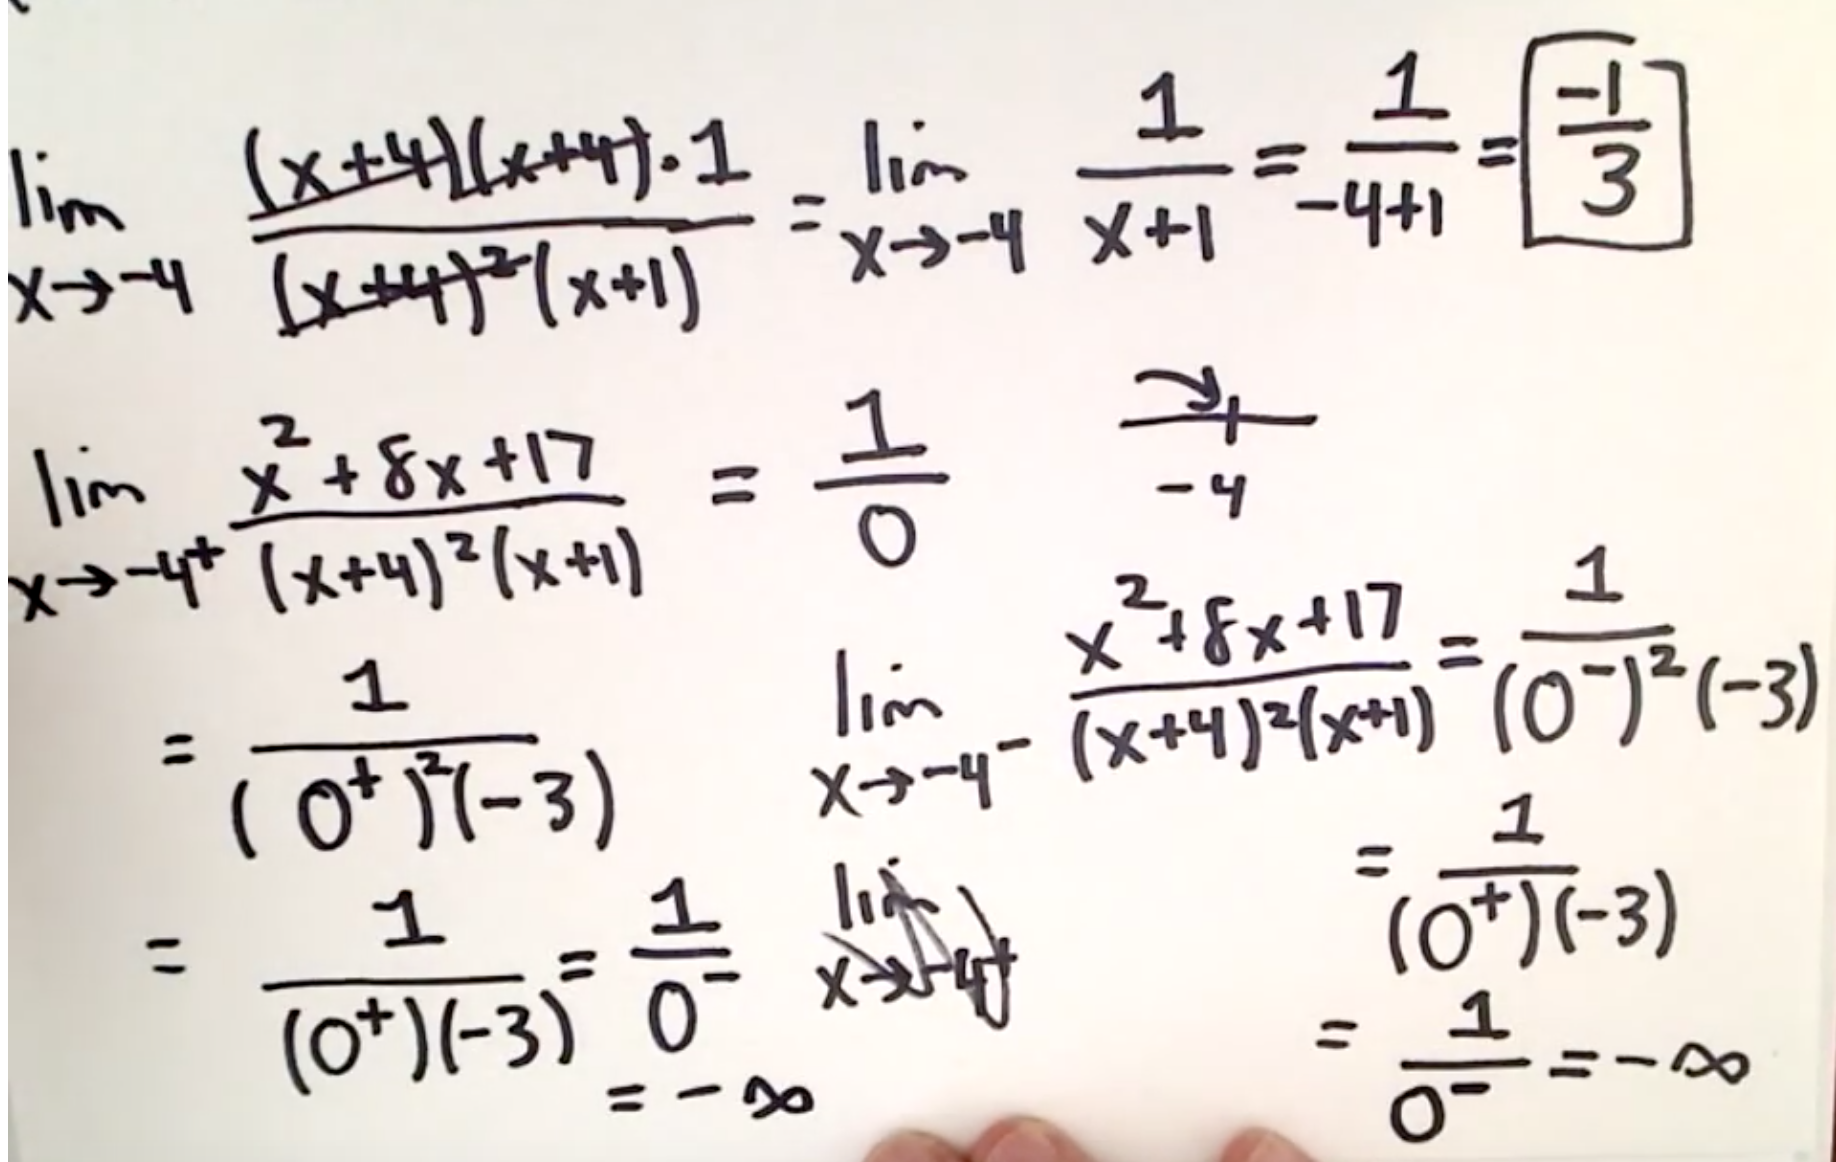 lim x→-4 (x+4)(x+4)·1 / (x+4)²(x+1) = lim x→-4 1/(x+1) = 1/(-4+1) = -1/3
lim x→-4⁺ x²+8x+17 / (x+4)²(x+1) = 1/0
-4
= 1/((0⁺)²(-3))
= 1/((0⁺)(-3)) = 1/0⁻
= -∞
lim x→-4⁻ x²+8x+17 / (x+4)²(x+1) = 1/((0⁻)²(-3))
lim x→-4⁺
= 1/((0⁺)(-3))
= 1/0⁻ = -∞